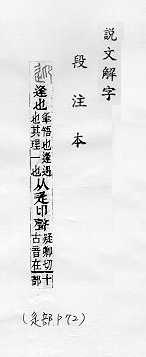 說文解字
段注本
逢也夆悟也逢遇也其理一也从辵卬聲疑卿切古音在十部
(辵部 P72)